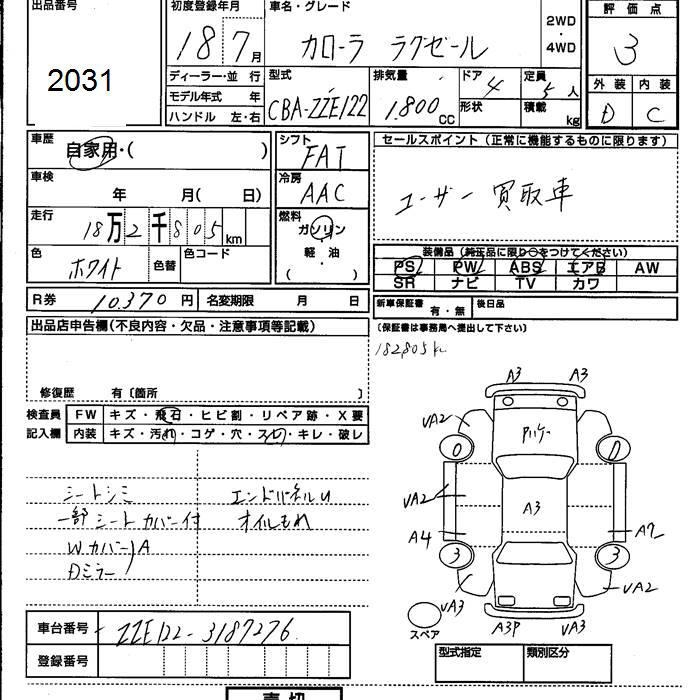 出品番号
2031
初度登録年月
18 7月
車名・グレード
カローラ ラクゼール
2WD
・
4WD
評価点
3
外装 内装
D C
ディーラー・並行
モデル年式 年
ハンドル 左・右
型式
CBA-ZZE122
排気量
1.800 CC
ドア
4
形状
定員
5人
積載
kg
車歴
自家用・( )
車検
年 月( 日)
走行
18万2千805km
色
ホワイト
色替
色コード
シフト
FAT
冷房
AAC
燃料
ガソリン
軽・油
( )
セールスポイント(正常に機能するものに限ります)
ユーザー買取車
装備品(純正品に限り○をつけてください)
PS PW ABS エアB AW
SR ナビ TV カワ
R券 10.370円 名変期限 月 日
新車保証書 有・無 後日品
(保証書は事務局へ提出して下さい)
182805k
出品店申告欄(不良内容・欠品・注意事項等記載)
修復歴 有〔箇所 〕
検査員
記入欄
FW キズ・飛石・ヒビ割・リペア跡・X要
内装 キズ・汚れ・コゲ・穴・スレ・キレ・破レ
シートシミ
一部シートカバー付
WカバーA
Dミラー
エンドパネルU
オイルもれ
A3 A3
UA2
O D
UA2 A3
A4 A2
3 3
UA3 UA2
A3P UA3
スペア
車台番号 ZZE122-3187276
登録番号
型式指定 類別区分
売切